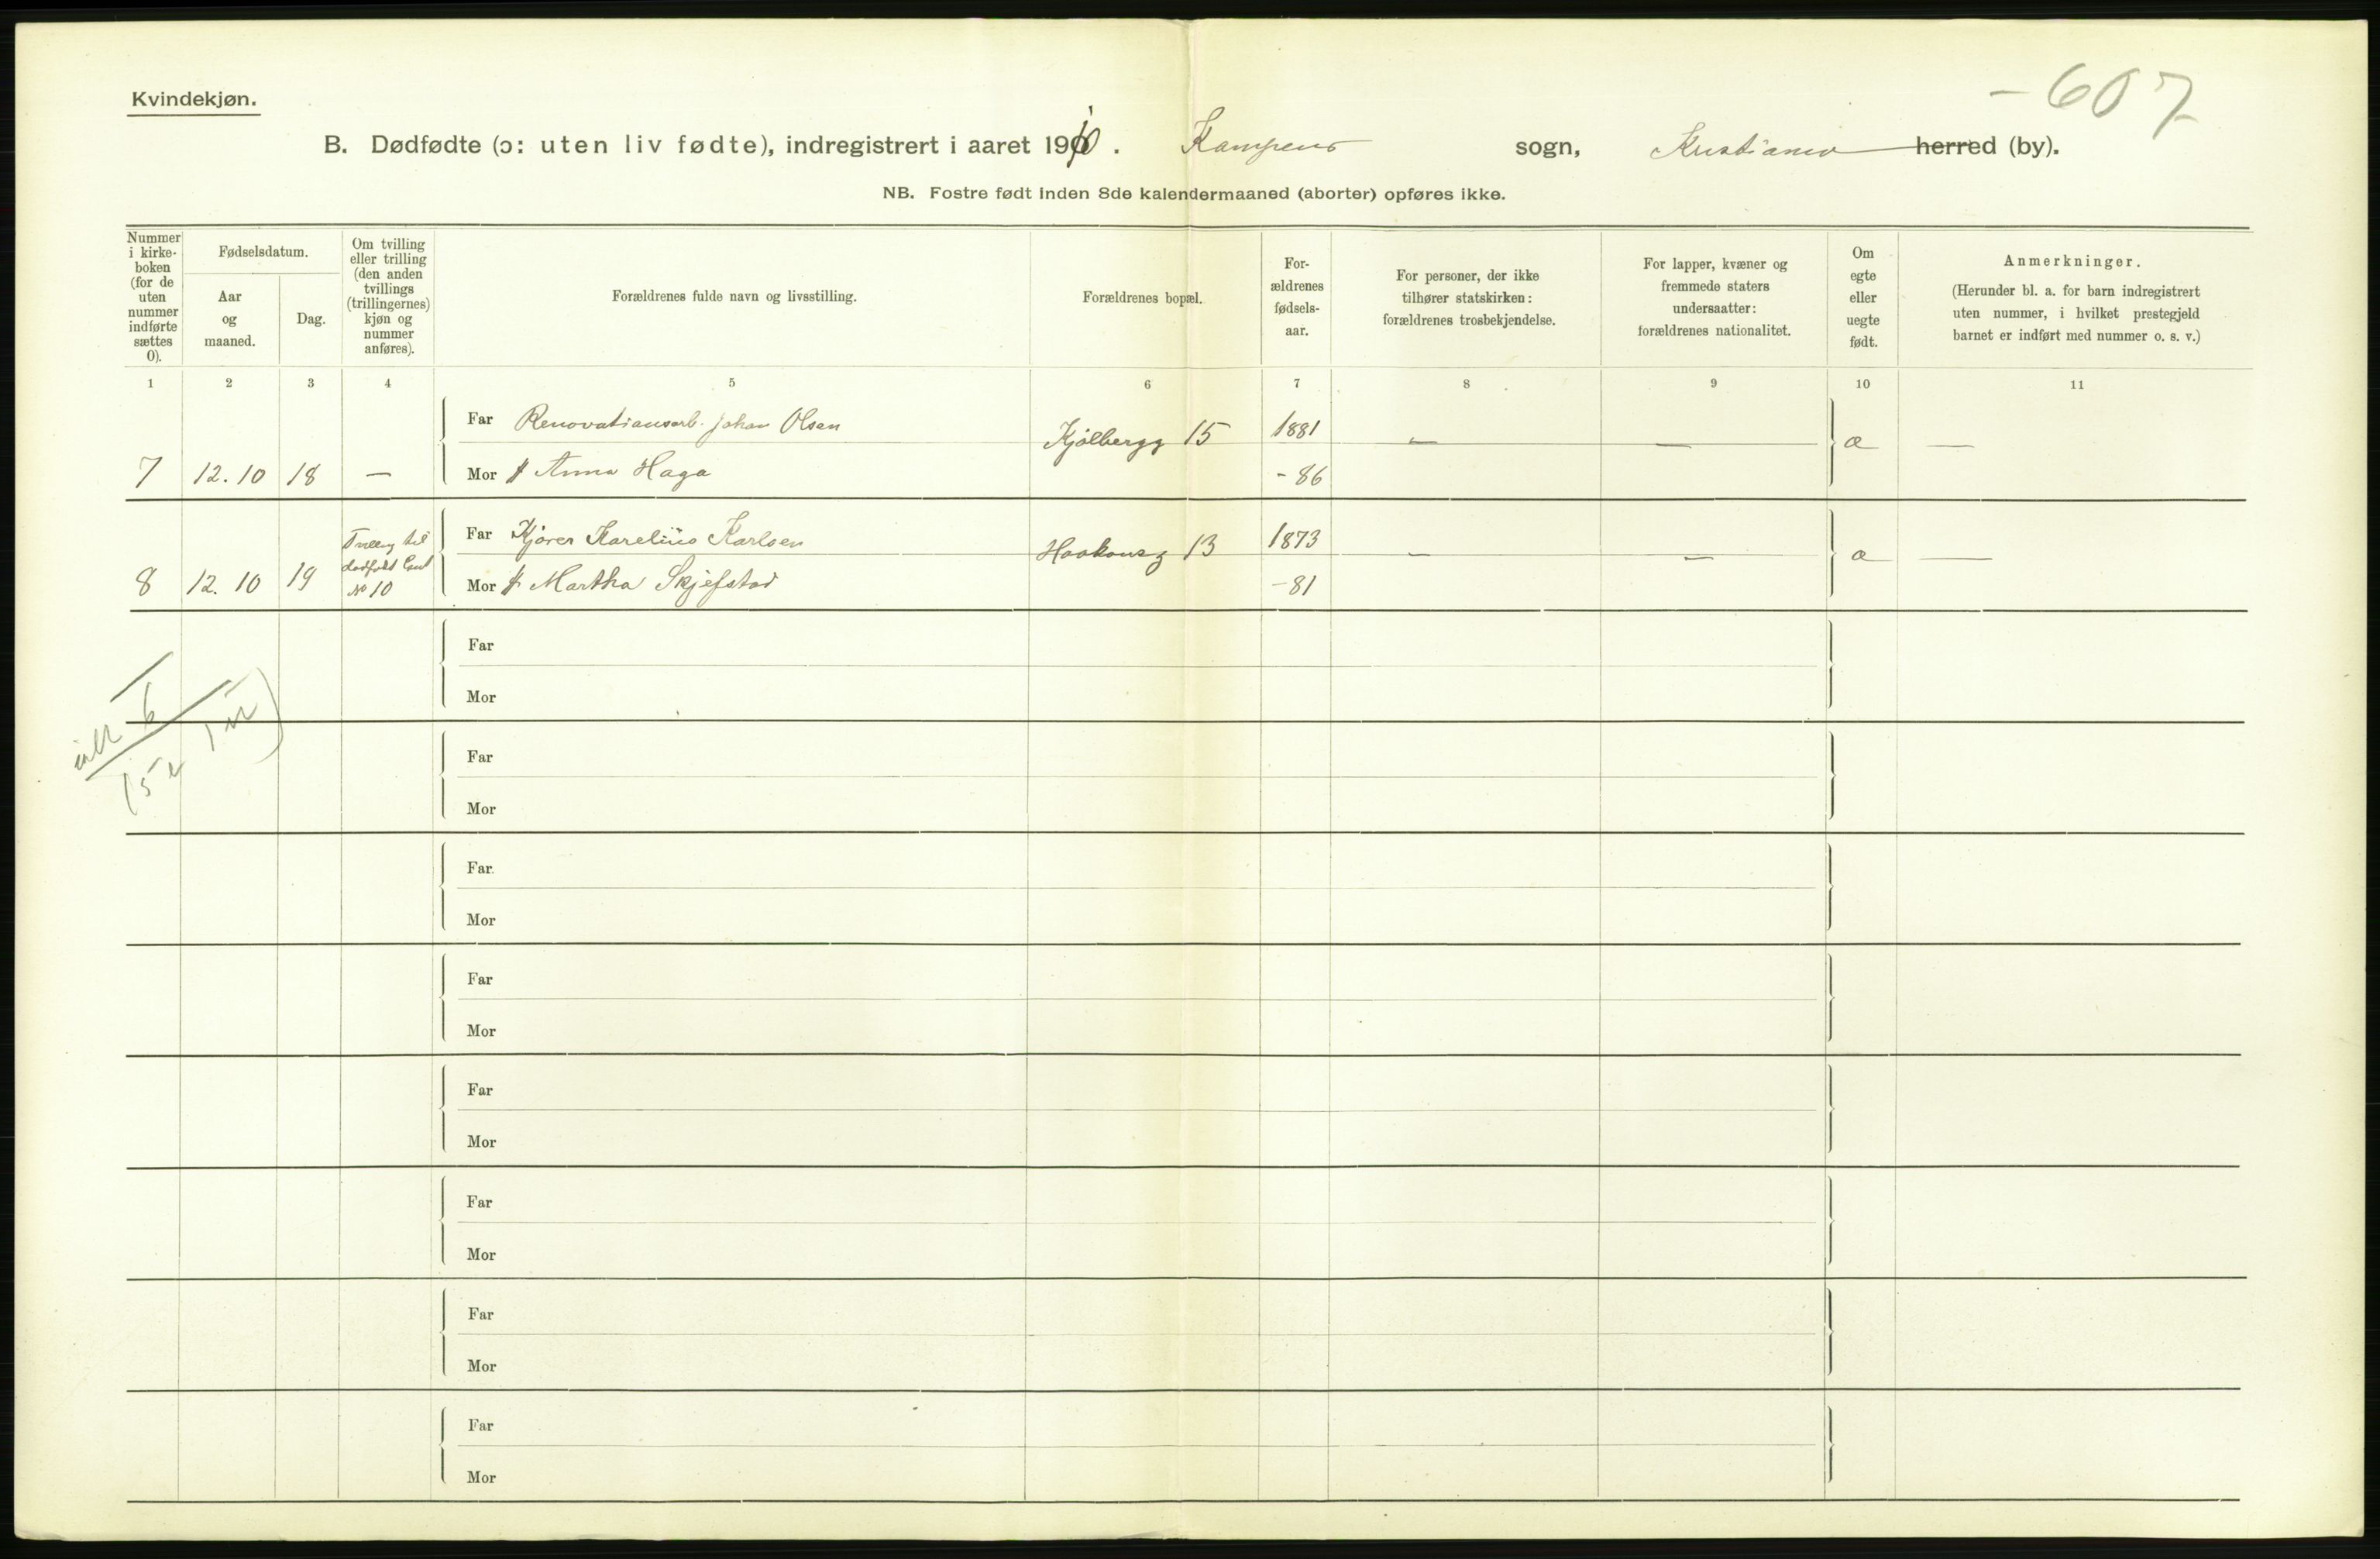 Kvindekjøn.
-607
B. Dødfødte (ɔ: uten liv fødte), indregistrert i aaret 1910. Kampens sogn, Kristiania herred (by).
NB. Fostre født inden 8de kalendermaaned (aborter) opføres ikke.
Nummer i kirke-boken (for de uten nummer indførte sættes 0).
Fødselsdatum.
Aar og maaned.
Dag.
Om tvilling eller trilling (den anden tvillings (trillingernes) kjøn og nummer anføres).
Forældrenes fulde navn og livsstilling.
Forældrenes bopæl.
For-ældrenes fødsels-aar.
For personer, der ikke tilhører statskirken: forældrenes trosbekjendelse.
For lapper, kvæner og fremmede staters undersaatter: forældrenes nationalitet.
Om egte eller uegte født.
Anmerkninger.
(Herunder bl. a. for barn indregistrert uten nummer, i hvilket prestegjeld barnet er indført med nummer o. s. v.)
1 2 3 4 5 6 7 8 9 10 11
Far Renovationsarb. Johan Olsen Kjølbergg 15 1881 — — æ —
7 12.10 18 — Mor Anna Haga - 86
Far Kjører Karelius Karlsen Haakonsg 13 1873 — — æ —
Tvilling til dødfødt Gut No 10
8 12.10 19 Mor Martha Skjefstad -81
Far
Mor
ialt 6
(5 e 1 u)
Far
Mor
Far
Mor
Far
Mor
Far
Mor
Far
Mor
Far
Mor
Far
Mor